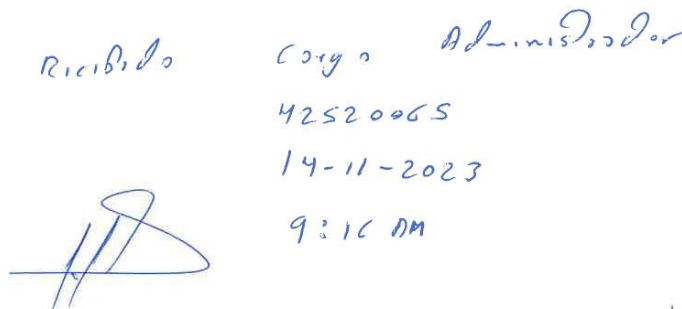 Recibido Cargo Administrador
42520065
14-11-2023
9:16 AM